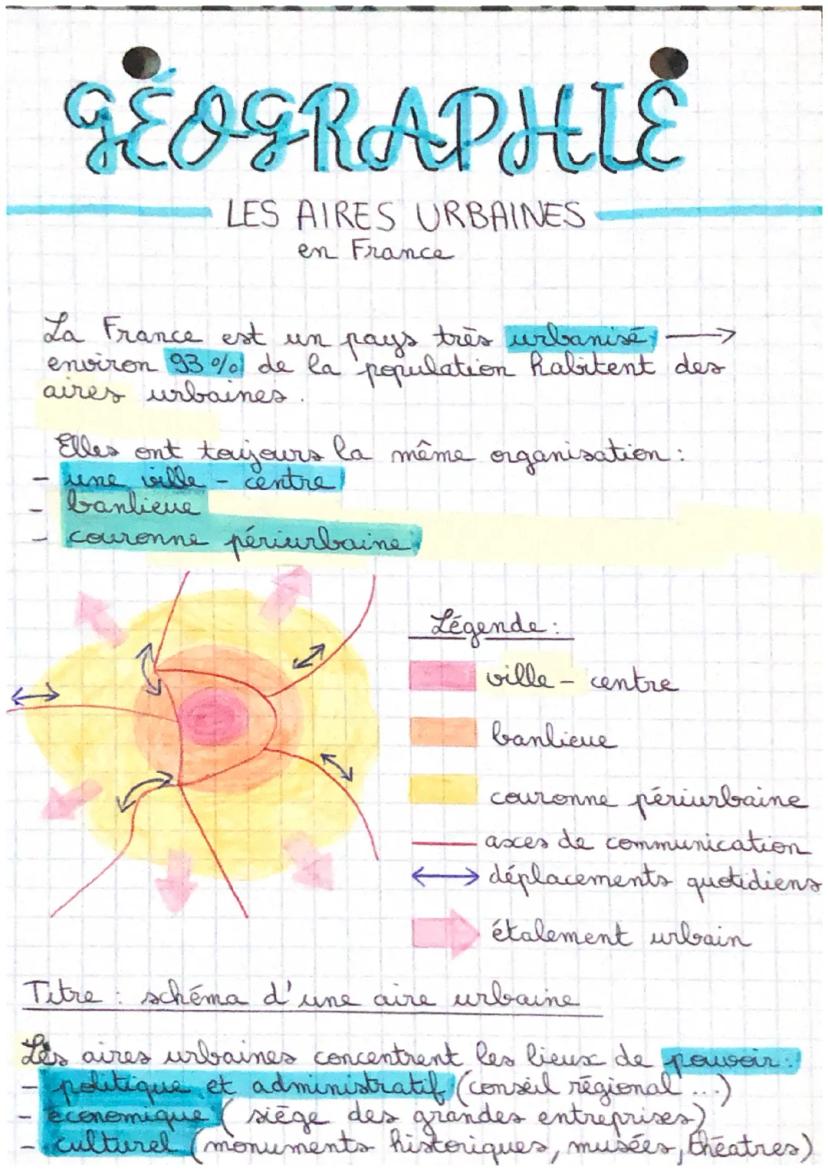 GÉOGRAPHIE
LES AIRES URBAINES
en France
La France est un pays très urbanisé →
environ 93% de la population habitent des
aires urbaines.
Elles ont toujours la même organisation :
- une ville - centre
- banlieue
- couronne périurbaine
Légende :
ville - centre
banlieue
couronne périurbaine
axes de communication
déplacements quotidiens
étalement urbain
Titre : schéma d'une aire urbaine
Les aires urbaines concentrent les lieux de pouvoir :
- politique et administratif (conseil régional ...)
- économique ( siège des grandes entreprises)
- culturel (monuments historiques, musées, théatres)